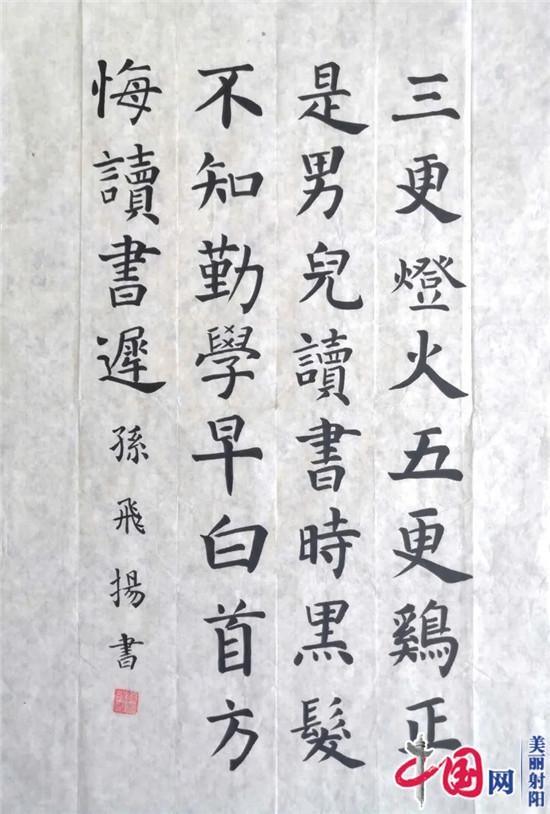 三更燈火五更鷄正
是男兒讀書時黑髮
不知勤學早白首方
悔讀書遲
孫飛揚書
中国网
美丽射阳